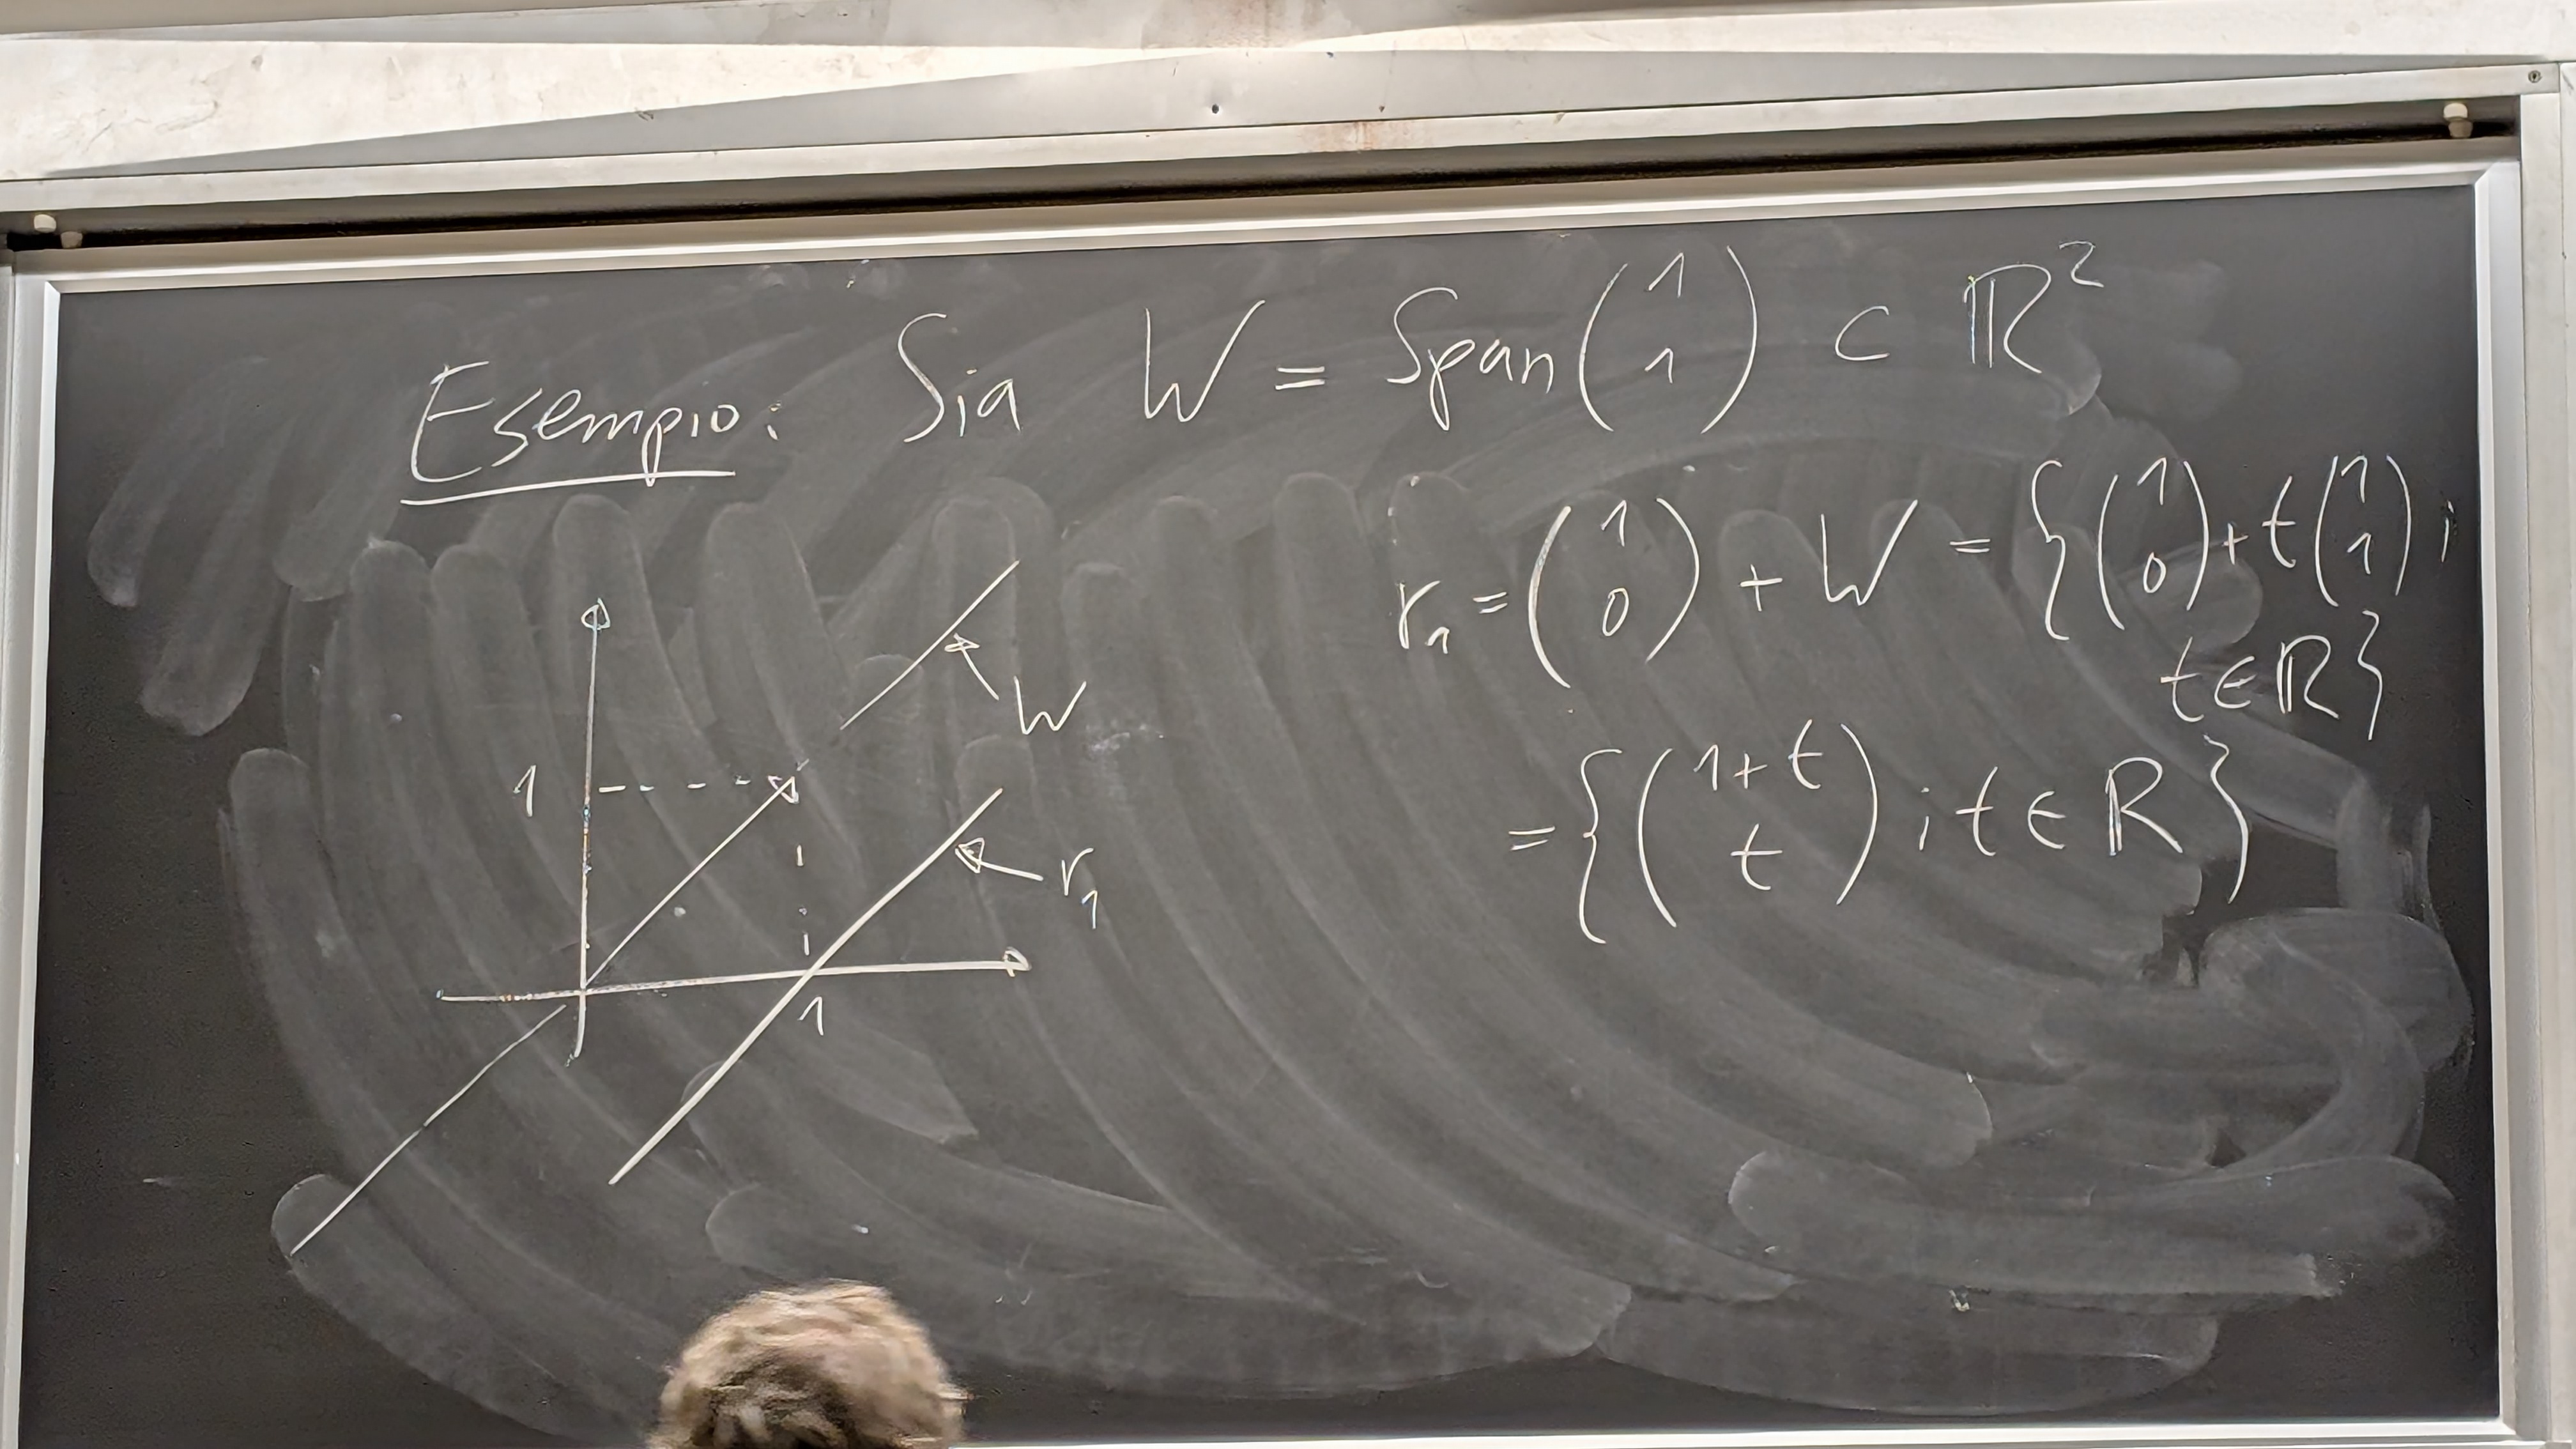 Esempio: Sia W = Span(1 1) ⊂ ℝ²
r₁ = (1 0) + W = {(1 0) + t(1 1) ;
t ∈ ℝ}
= {(1+t t) ; t ∈ ℝ}
W
1
r₁
1